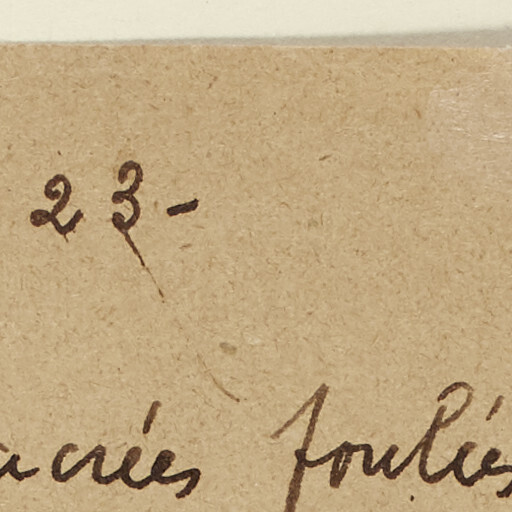 23-
acrées foulées